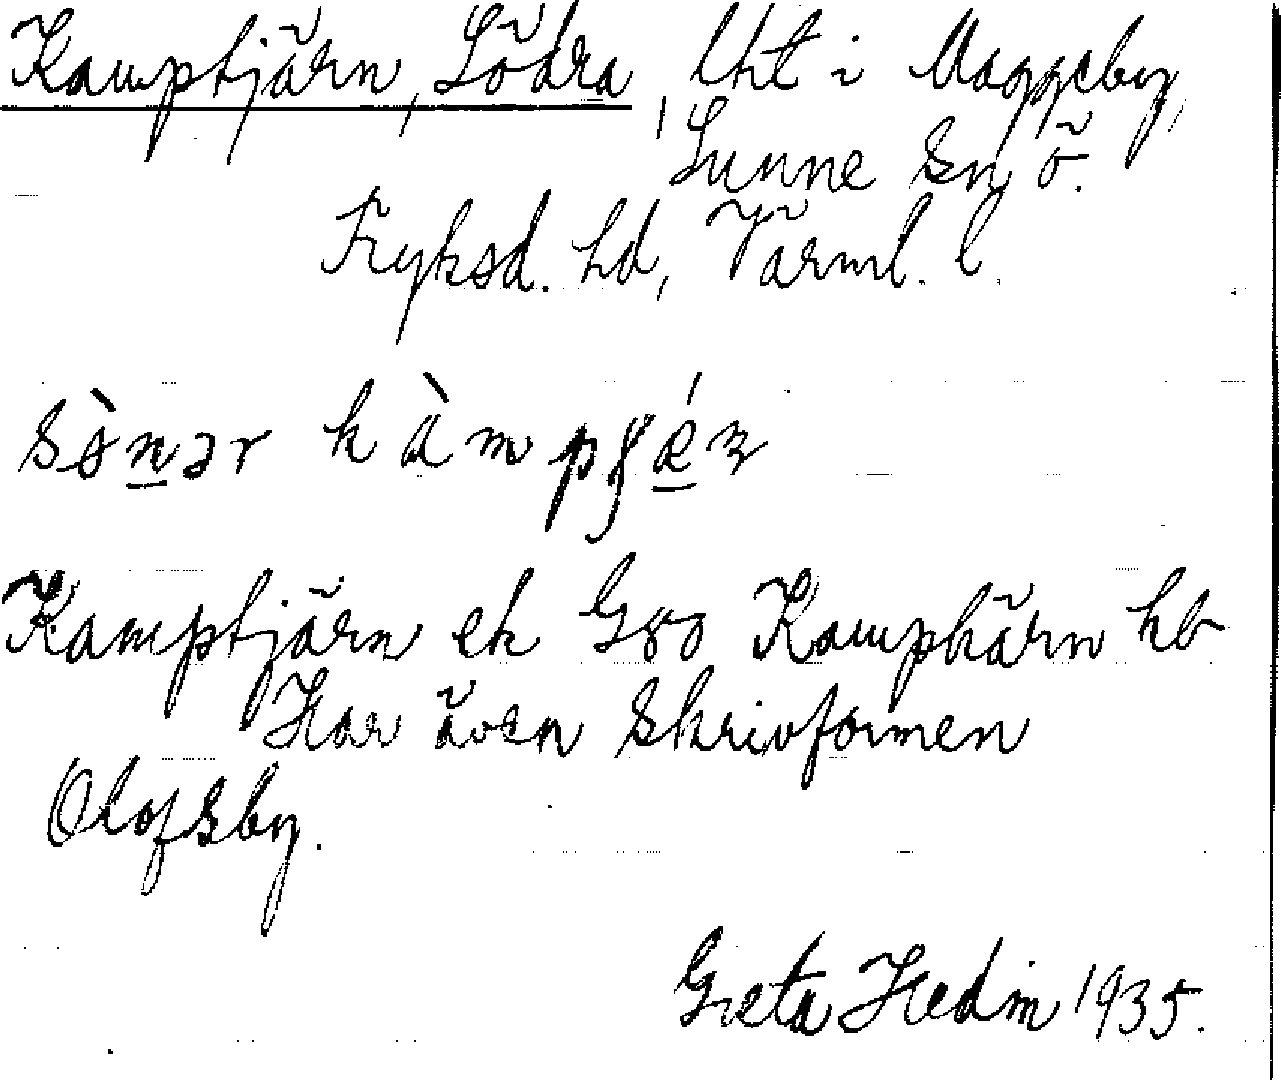 Kamptjärn, Södra, lht i Maggeby,
Sunne sn, ö.
Fryksd. hd, Värml. l.
Kamptjärn ek G80 Kampkärn hb
Har även skrivformen
Olofsby.
Greta Hedin 1935.